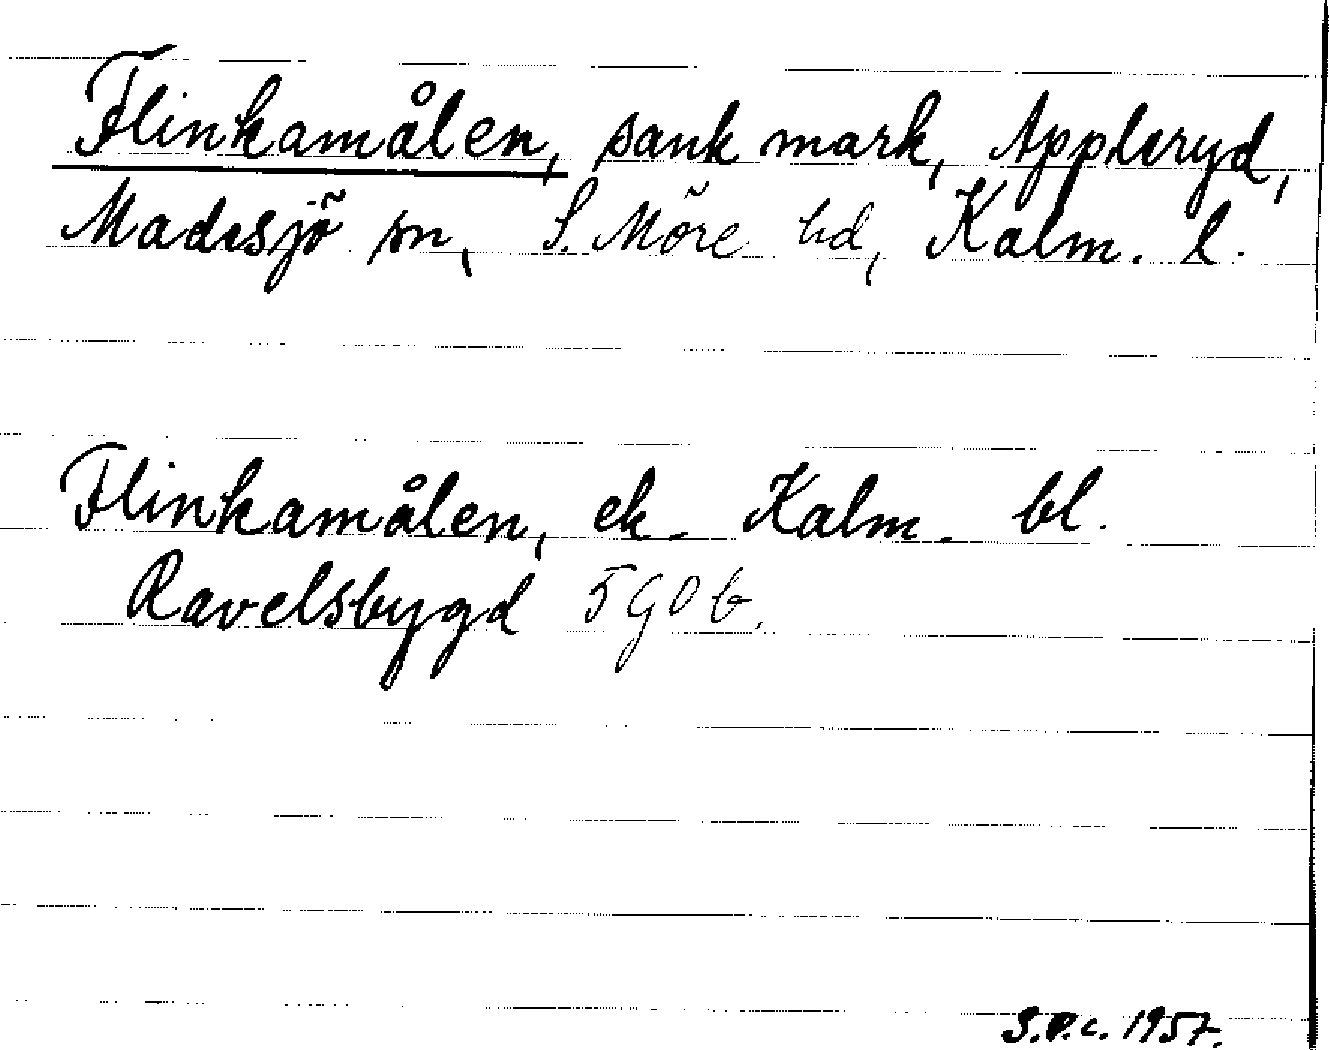 Flinkamålen, sank mark, Appleryd,
Madesjö sn, S. Möre hd, Kalm. l.
Flinkamålen, ek. Kalm. bl.
Ravelsbygd 5 G 0 b.
S.P.c. 1957.